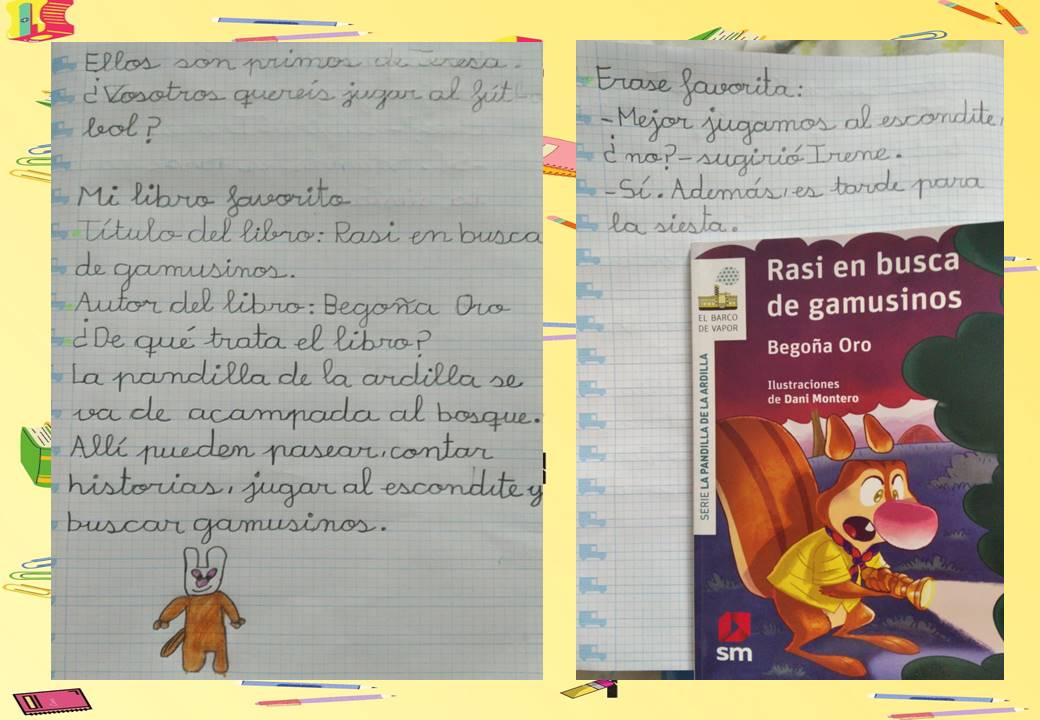 Ellos son primos de Teresa.
¿Vosotros queréis jugar al fút
bol?
Mi libro favorito
Título del libro: Rasi en busca
de gamusinos.
Autor del libro: Begoña Oro
¿De qué trata el libro?
La pandilla de la ardilla se
va de acampada al bosque.
Allí pueden pasear, contar
historias, jugar al escondite y
buscar gamusinos.
Frase favorita:
-Mejor jugamos al escondite,
¿no?-sugirió Irene.
-Sí. Además, es tarde para
la siesta.
Rasi en busca
de gamusinos
EL BARCO
DE VAPOR
Begoña Oro
Ilustraciones
de Dani Montero
SERIE LA PANDILLA DE LA ARDILLA
sm